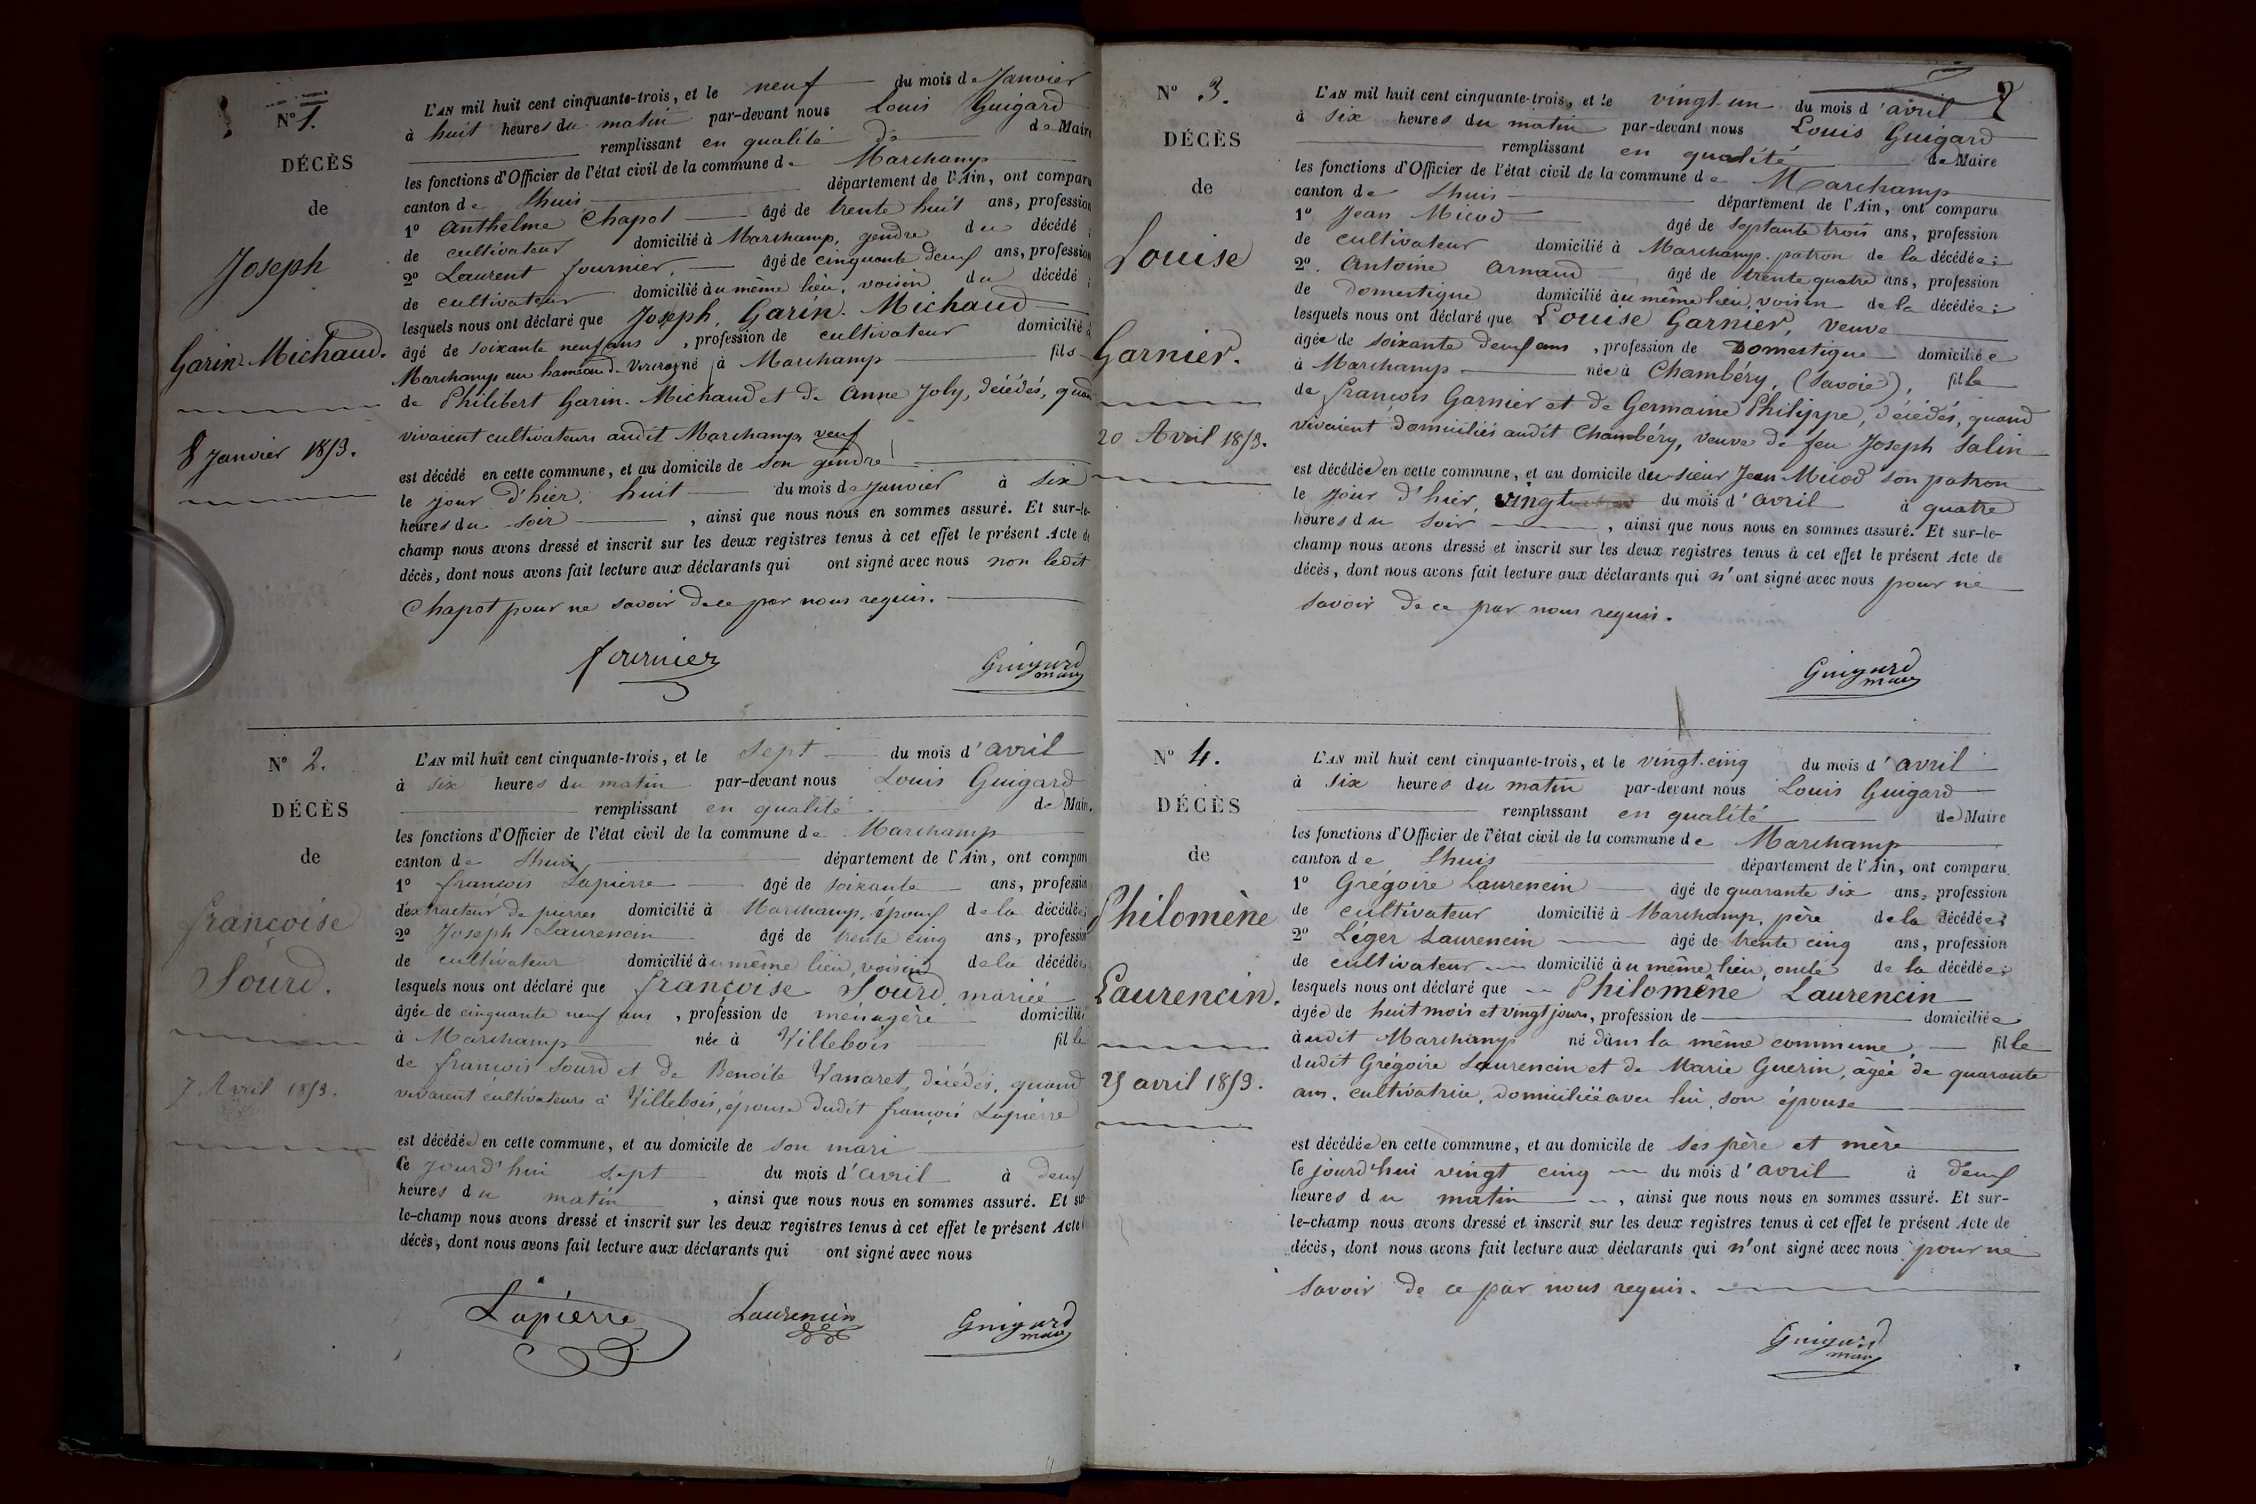 N° 1.
DÉCÈS
de
Joseph
Garin-Michaud.
8 Janvier 1853.
L'AN mil huit cent cinquante-trois, et le neuf du mois de Janvier
à huit heures du matin par-devant nous Louis Guigard
remplissant en qualité de de Maire
les fonctions d'Officier de l'état civil de la commune de Marchamp
canton de Lhuis département de l'Ain, ont comparu
1° Anthelme Chapot âgé de trente huit ans, profession
de cultivateur domicilié à Marchamp, gendre du décédé ;
2° Laurent Fournier, âgé de cinquante deux ans, profession
de cultivateur domicilié au même lieu, voisin du décédé ;
lesquels nous ont déclaré que Joseph Garin-Michaud
âgé de soixante neuf ans, profession de cultivateur domicilié à
Marchamp au hameau de né à Marchamp fils
de Philibert Garin-Michaud et de Anne Joly, décédés, quand
vivaient cultivateurs audit Marchamp, veuf
est décédé en cette commune, et au domicile de son gendre
le jour d'hier, huit du mois de Janvier à six
heures du soir, ainsi que nous nous en sommes assuré. Et sur-le-
champ nous avons dressé et inscrit sur les deux registres tenus à cet effet le présent Acte de
décès, dont nous avons fait lecture aux déclarants qui ont signé avec nous non ledit
Chapot pour ne savoir de ce par nous requis.
Fournier
Guigard
maire
N° 2.
DÉCÈS
de
Françoise
Sourd.
7 Avril 1853.
L'AN mil huit cent cinquante-trois, et le sept du mois d'avril
à six heures du matin par-devant nous Louis Guigard
remplissant en qualité de Maire
les fonctions d'Officier de l'état civil de la commune de Marchamp
canton de Lhuis département de l'Ain, ont comparu
1° François Lapierre âgé de soixante ans, profession
d'extracteur de pierres domicilié à Marchamp, époux de la décédée ;
2° Joseph Laurencin âgé de trente cinq ans, profession
de cultivateur domicilié au même lieu, voisin de la décédée ;
lesquels nous ont déclaré que Françoise Sourd, mariée
âgée de cinquante neuf ans, profession de ménagère domiciliée
à Marchamp née à Villebois fille
de François Sourd et de Benoite Vanaret, décédés, quand
vivaient cultivateurs à Villebois, épouse dudit François Lapierre
est décédée en cette commune, et au domicile de son mari
Ce jourd'hui sept du mois d'avril à deux
heures du matin, ainsi que nous nous en sommes assuré. Et sur-
le-champ nous avons dressé et inscrit sur les deux registres tenus à cet effet le présent Acte de
décès, dont nous avons fait lecture aux déclarants qui ont signé avec nous
Lapierre
Laurencin
Guigard
maire
2
N° 3.
DÉCÈS
de
Louise
Garnier.
20 Avril 1853.
L'AN mil huit cent cinquante-trois, et le vingt-un du mois d'avril
à six heures du matin par-devant nous Louis Guigard
remplissant en qualité de Maire
les fonctions d'Officier de l'état civil de la commune de Marchamp
canton de Lhuis département de l'Ain, ont comparu
1° Jean Micod âgé de septante trois ans, profession
de cultivateur domicilié à Marchamp, patron de la décédée ;
2° Antoine Arnaud âgé de trente quatre ans, profession
de Domestique domicilié au même lieu, voisin de la décédée ;
lesquels nous ont déclaré que Louise Garnier, veuve
âgée de soixante deux ans, profession de Domestique domiciliée
à Marchamp née à Chambéry, (Savoie), fille
de François Garnier et de Germaine Philippe, décédés, quand
vivaient domiciliés audit Chambéry, veuve de feu Joseph Salin
est décédée en cette commune, et au domicile du sieur Jean Micod son patron
le jour d'hier, vingt du mois d'avril à quatre
heures du soir, ainsi que nous nous en sommes assuré. Et sur-le-
champ nous avons dressé et inscrit sur les deux registres tenus à cet effet le présent Acte de
décès, dont nous avons fait lecture aux déclarants qui n'ont signé avec nous pour ne
savoir de ce par nous requis.
Guigard
maire
N° 4.
DÉCÈS
de
Philomène
Laurencin.
25 avril 1853.
L'AN mil huit cent cinquante-trois, et le vingt-cinq du mois d'avril
à six heures du matin par-devant nous Louis Guigard
remplissant en qualité de Maire
les fonctions d'Officier de l'état civil de la commune de Marchamp
canton de Lhuis département de l'Ain, ont comparu
1° Grégoire Laurencin âgé de quarante six ans, profession
de cultivateur domicilié à Marchamp, père de la décédée ;
2° Léger Laurencin âgé de trente cinq ans, profession
de cultivateur domicilié au même lieu, oncle de la décédée ;
lesquels nous ont déclaré que Philomène Laurencin
âgée de huit mois et vingt jours, profession de domiciliée
audit Marchamp né dans la même commune, fille
dudit Grégoire Laurencin et de Marie Guerin, âgée de quarante
ans, cultivatrice, domiciliée avec lui, son épouse
est décédée en cette commune, et au domicile de ses père et mère
Ce jourd'hui vingt cinq du mois d'avril à deux
heures du matin, ainsi que nous nous en sommes assuré. Et sur-
le-champ nous avons dressé et inscrit sur les deux registres tenus à cet effet le présent Acte de
décès, dont nous avons fait lecture aux déclarants qui n'ont signé avec nous pour ne
savoir de ce par nous requis.
Guigard
maire